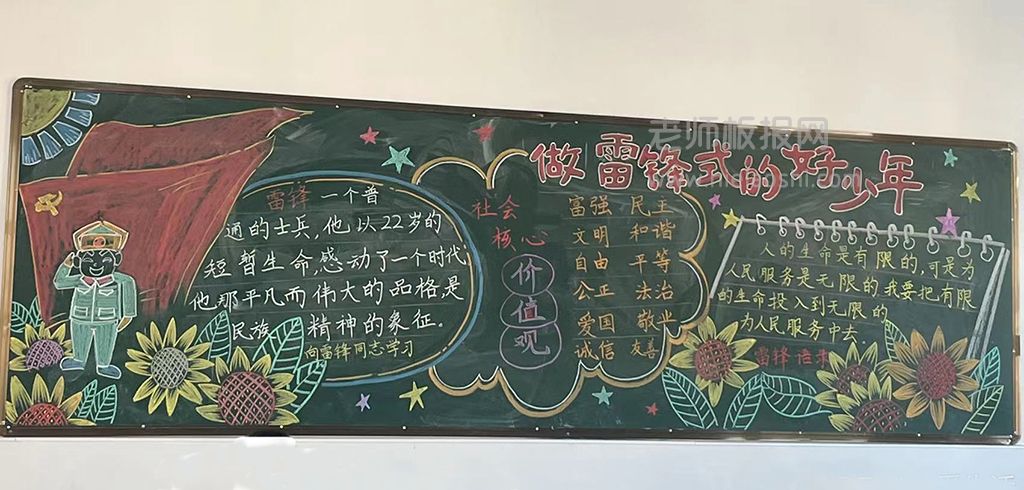 做雷锋式的好少年
雷锋 一个普
通的士兵,他以22岁的
短暂生命,感动了一个时代
他那平凡而伟大的品格,是
民族 精神的象征。
向雷锋同志学习
社会
核心
价
值
观
富强 民主
文明 和谐
自由 平等
公正 法治
爱国 敬业
诚信 友善
人的生命是有限的,可是为
人民服务是无限的,我要把有限
的生命投入到无限的
为人民服务中去。
雷锋语录
老师板报网